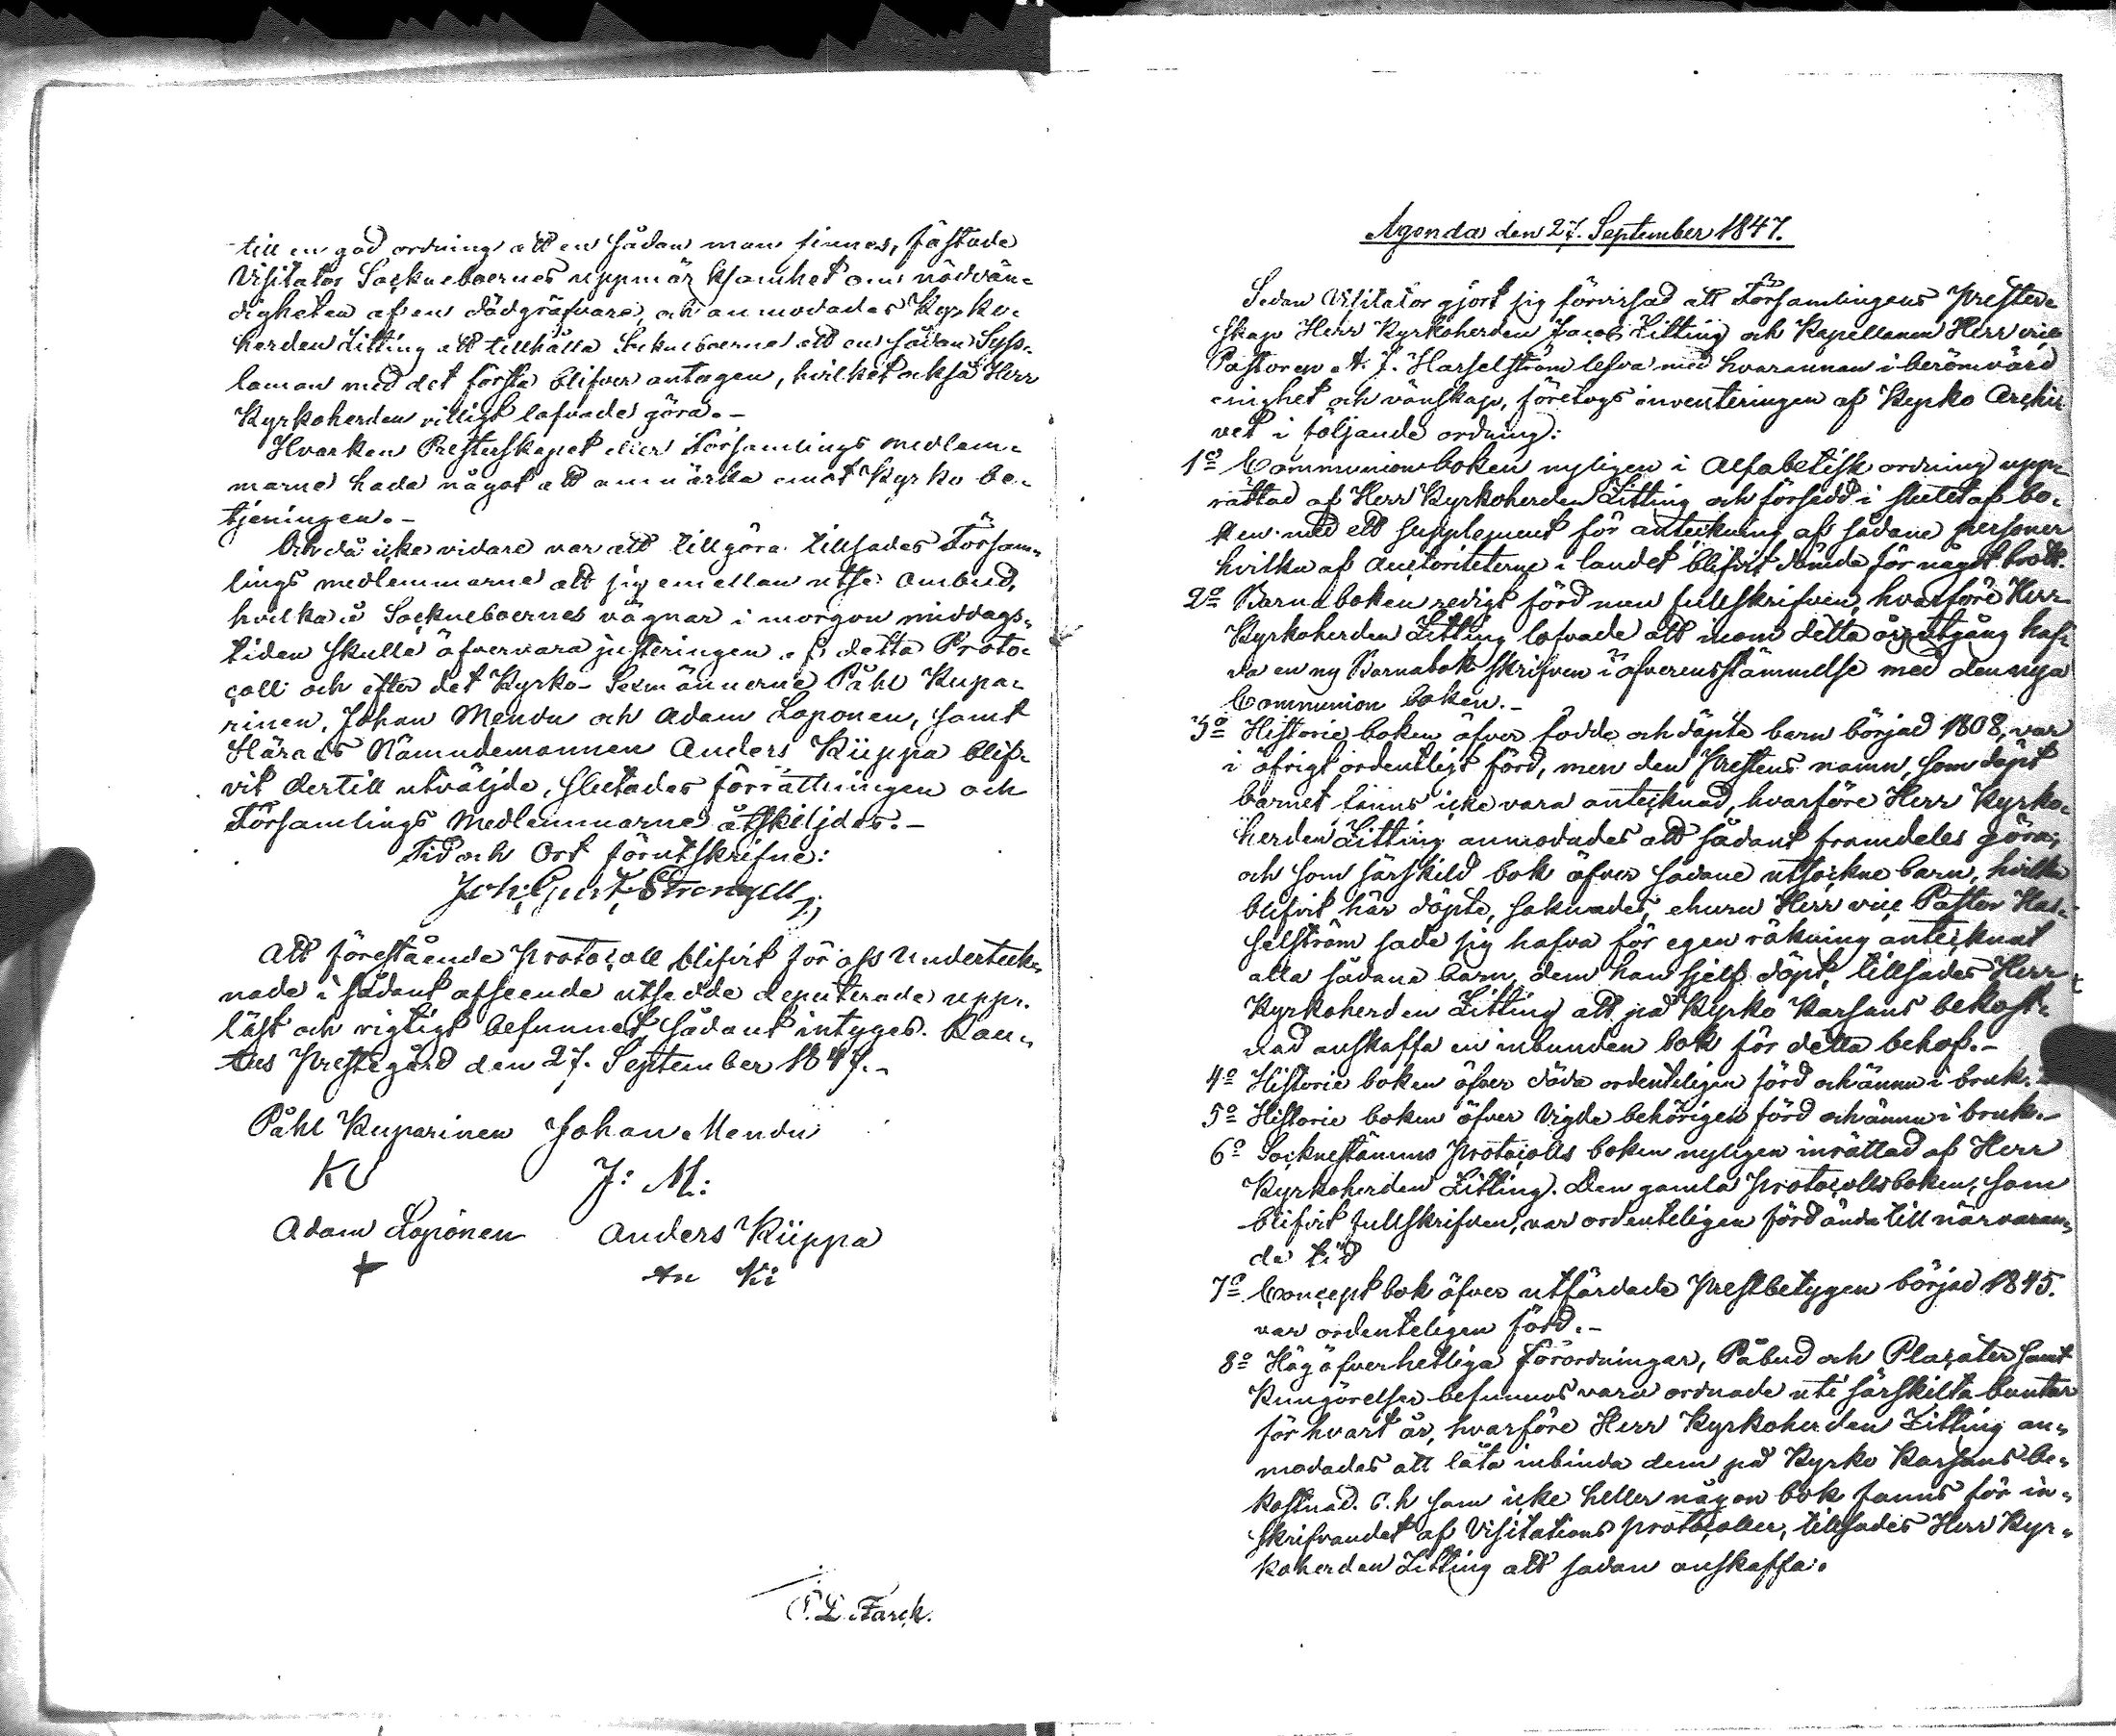 till en god ordning att en sådan man finnes, fästade
Visitator Sockneboernes uppmärksamhet om nödvän-
digheten af en dödgräfvare, och anmodades Kyrko-
herden Zitting att tillhålla Sockneboerne att en sådan Syss-
loman med det första blifver antagen, hvilket också Herr
Kyrkoherden villigt lofvade göra.-
Hvarken Presterskapet eller Församlings medlem-
marne hade något att anmärka emot Kyrko be-
tjeningen.-
Och då icke vidare var att tillgöra tillsades Försam-
lings medlemmarne att sig emellan utse ombud,
hvilka å Sockneboernes vägnar i morgon middags-
tiden skulle äfvervara justeringen af detta Proto-
coll och efter det Kyrko-Sexmännerne Påhl Kupa-
rinen, Johan Mendu och Adam Loponen, samt
Härads Nämndemannen Anders Kiippa blif-
vit dertill utväljde, slutades förrättningen och
Församlings Medlemmarne åtskiljdes.-
Tid och Ort förutskrifne:
Joh: Gust: Strengell
Att förestående Protocoll blifvit för oss underteck-
nade i sådant afseende utsedde deputerade upp-
läst och rigtigt befunnet, sådant intyges. Rau-
tus Prestegård den 27. September 1847.-
Påhl Kuparinen Johan Mendu
KU J: M:
Adam Loponen Anders Kiippa
+ An Ki
Agenda den 27. September 1847.
Sedan Visitator gjort sig förvissad att Församlingens Prester-
skap Herr Kyrkoherden Jacob Zitting och Kapellanen Herr vice
Pastoren A. J. Hasselström lefva med hvarannan i berömvärd
enighet och vänskap, företogs inventeringen af Kyrko Archi-
vet i följande ordning:
1º Communionboken nyligen i Alfabetisk ordning upp-
rättad af Herr Kyrkoherden Zitting och försedd i slutet af bo-
ken med ett supplement för anteckning af sådane personer
hvilka af Auctoriteterne i landet blifvit dömda för något brott.
2º Barnaboken redigt förd men fullskrifven, hvarföre Herr
Kyrkoherden Zitting lofvade att inom detta års utgång haf-
va en ny Barnabok skrifven i öfverensstämmelse med den nya
Communion boken.-
3º Historie boken öfver födde och döpte barn började 1808, var
i öfrigt ordentligt förd, men den Prestens namn, som döpt
barnet fanns icke vara antecknad, hvarföre Herr Kyrko-
herden Zitting anmodades att sådant framdeles göra;
och som särskild bok öfver sådane utsockne barn, hvilka
blifvit här döpte, saknades, ehuru Herr vice Pastor Has-
selström sade sig hafva för egen räkning antecknat
alla sådana barn, dem han sjelf döpt, tillsades Herr
Kyrkoherden Zitting att på Kyrko Kassans bekost-
nad anskaffa en inbunden bok för detta behof.-
4º Historie boken öfver döda ordenteligen förd och ännu i bruk.-
5º Historie boken öfver Vigde behörigen förd och ännu i bruk.-
6º Socknestämmo Protocolls boken nyligen inrättad af Herr
Kyrkoherden Zitting. Den gamla Protocollsboken, som
blifvit fullskrifven, var ordenteligen förd ända till närvaran-
de tid
7º Concept bok öfver utfärdade Prestbetygen började 1845.
var ordenteligen förd.-
8º Hög öfverhetliga Förordningar, Påbud och Placater samt
Kungörelser befunnos vara ordnade uti särskilta buntar
för hvart år, hvarföre Herr Kyrkoherden Zitting an-
modades att låta inbinda dem på Kyrko Kassans be-
kostnad. Och som icke heller någon bok fanns för in-
skrifvandet af Visitations protocoller, tillsades Herr Kyr-
koherden Zitting att sådan anskaffa.